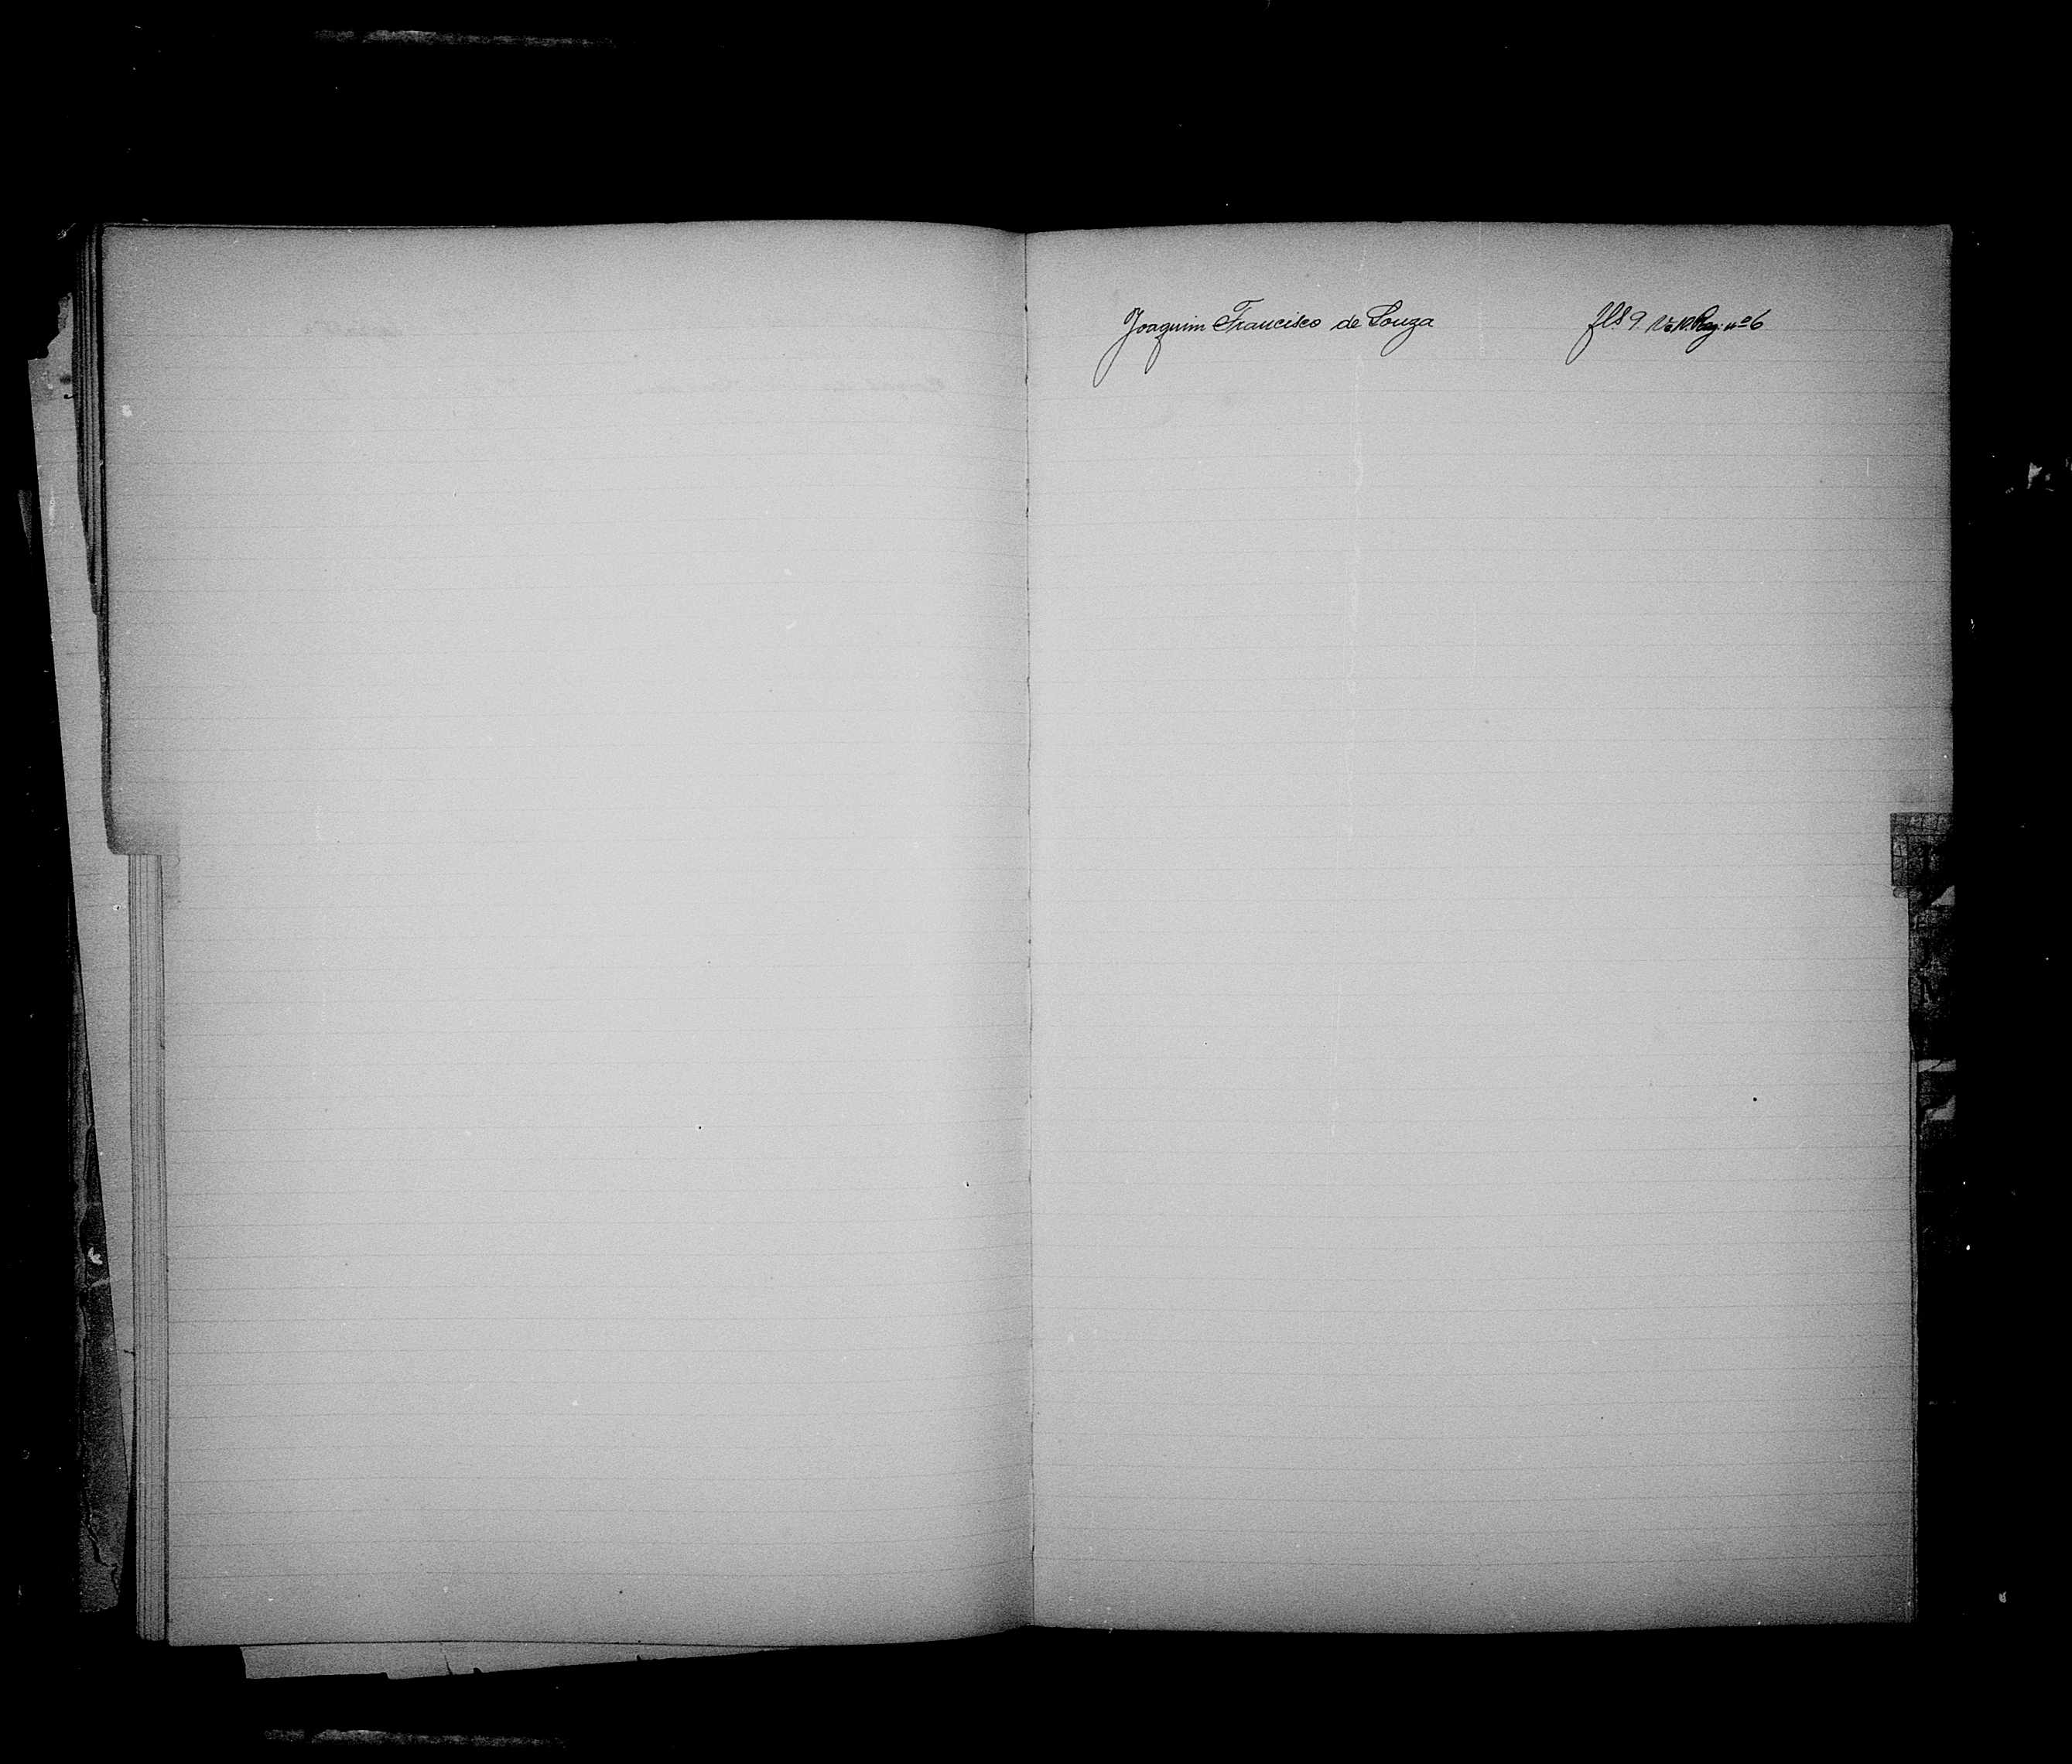 Joaquim Francisco de Souza fls 9. Vo. Reg. nº 6